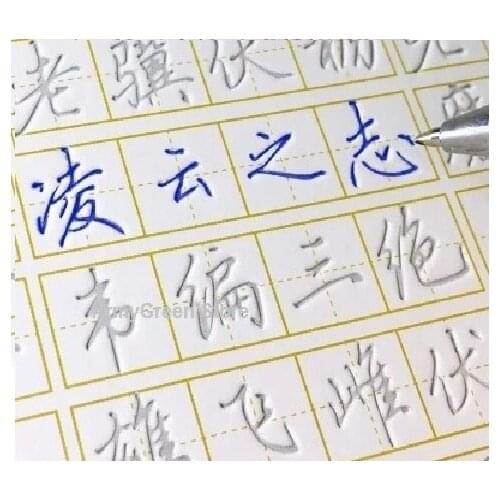 老骥伏枥
凌云之志
韦编三绝
ArmyGreen Store
雄飞雌伏